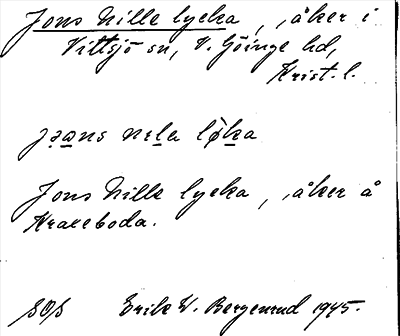 Jons Nille lycka, , åker i
Vittsjö sn, V. Göinge hd,
Krist. l.
Jons Nille lycka, , åker å
Krareboda.
Erik W. Bergenrud 1945.